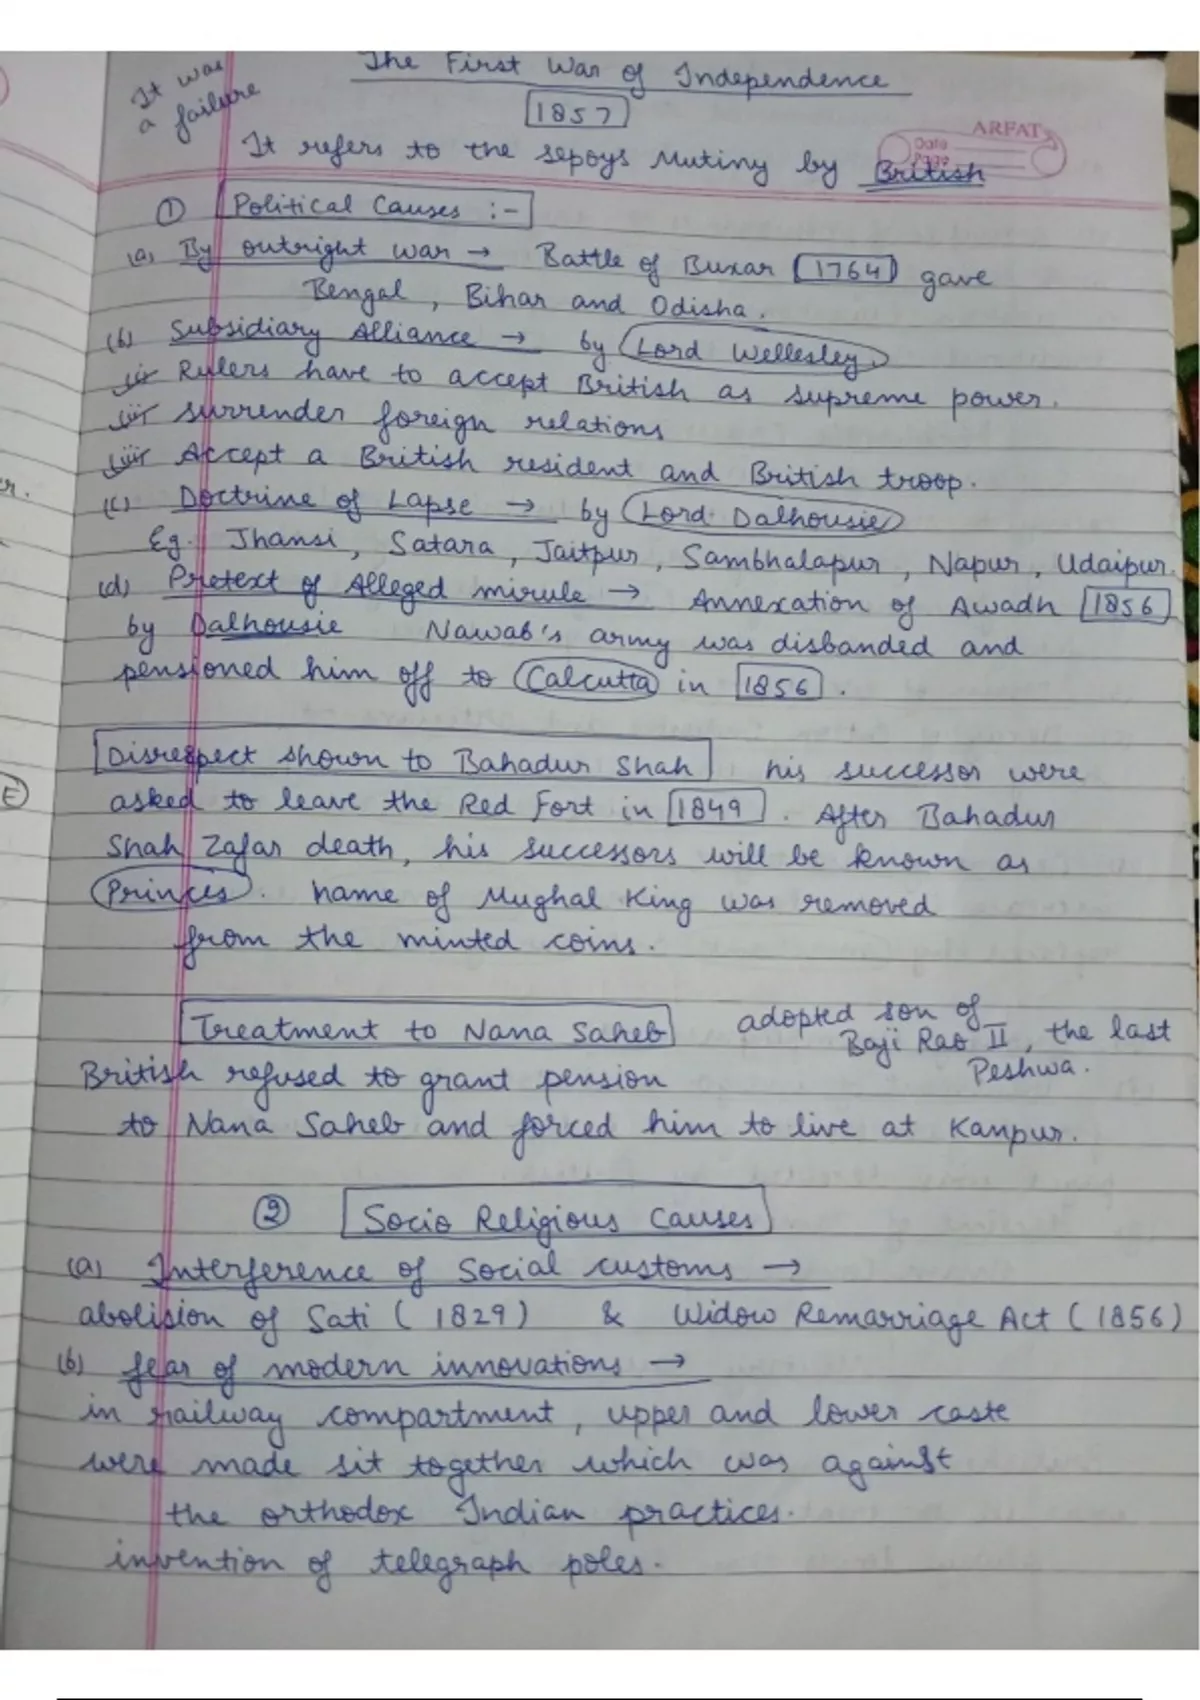 It was
a failure
The First War of Independence
1857
ARFAT
Date
Page
It refers to the sepoys Mutiny by British
① Political Causes :-
(a) By outright war → Battle of Buxar 1764 gave
Bengal, Bihar and Odisha.
(b) Subsidiary Alliance → by Lord Wellesley
(i) Rulers have to accept British as supreme power.
(ii) surrender foreign relations
(iii) Accept a British resident and British troop.
(c) Doctrine of Lapse → by Lord Dalhousie
Eg. Jhansi, Satara, Jaitpur, Sambhalapur, Napur, Udaipur.
(d) Pretext of Alleged misrule → Annexation of Awadh 1856
by Dalhousie Nawab's army was disbanded and
pensioned him off to Calcutta in 1856.
Disrespect shown to Bahadur Shah his successor were
asked to leave the Red Fort in 1849. After Bahadur
Shah Zafar death, his successors will be known as
Princes. name of Mughal King was removed
from the minted coins.
Treatment to Nana Saheb adopted son of
Baji Rao II, the last
Peshwa.
British refused to grant pension
to Nana Saheb and forced him to live at Kanpur.
② Socio Religious Causes
(a) Interference of Social customs →
abolision of Sati (1829) & Widow Remarriage Act (1856)
(b) fear of modern innovations →
in railway compartment, upper and lower caste
were made sit together which was against
the orthodox Indian practices.
invention of telegraph poles.